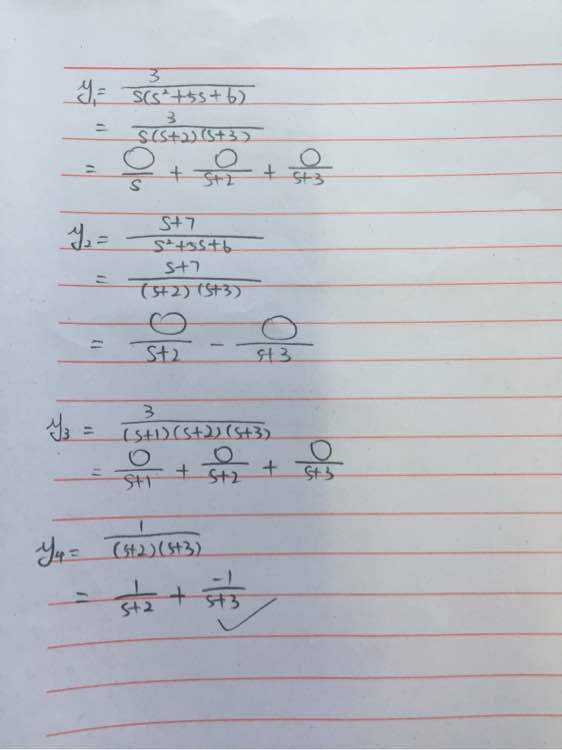 y₁ = 3/(s(s²+5s+6))
= 3/(s(s+2)(s+3))
= ○/s + ○/(s+2) + ○/(s+3)
y₂ = (s+7)/(s²+5s+6)
= (s+7)/((s+2)(s+3))
= ○/(s+2) − ○/(s+3)
y₃ = 3/((s+1)(s+2)(s+3))
= ○/(s+1) + ○/(s+2) + ○/(s+3)
y₄ = 1/((s+2)(s+3))
= 1/(s+2) + -1/(s+3) ✓